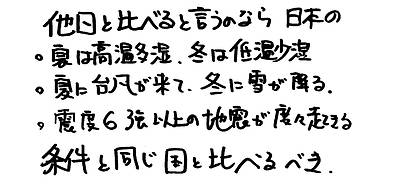 他国と比べると言うのなら 日本の
。夏は高温多湿、冬は低温少湿
。夏に台風が来て、冬に雪が降る.
。震度6強以上の地震が度々起きる
条件と同じ国と比べるべき.